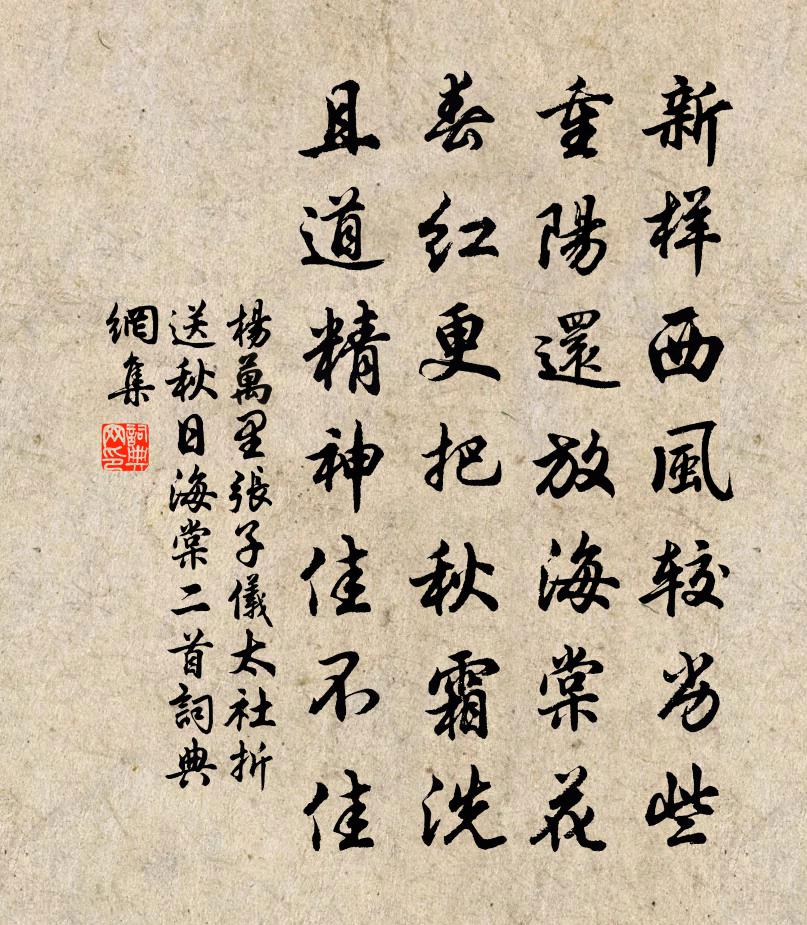 新样西風较劣些
重陽還放海棠花
春紅更把秋霜洗
且道精神佳不佳
楊萬里張子儀太社折
送秋日海棠二首詞典
網集
詞典
网印